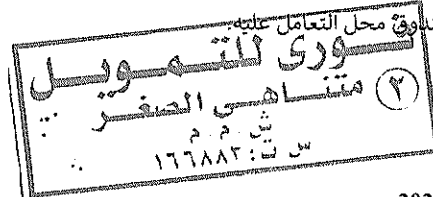 محل التعامل عليه.
نورى للتمويل
متناهى الصغر
٢
ش . م . م
س ت : ١٦٦٨٨٢